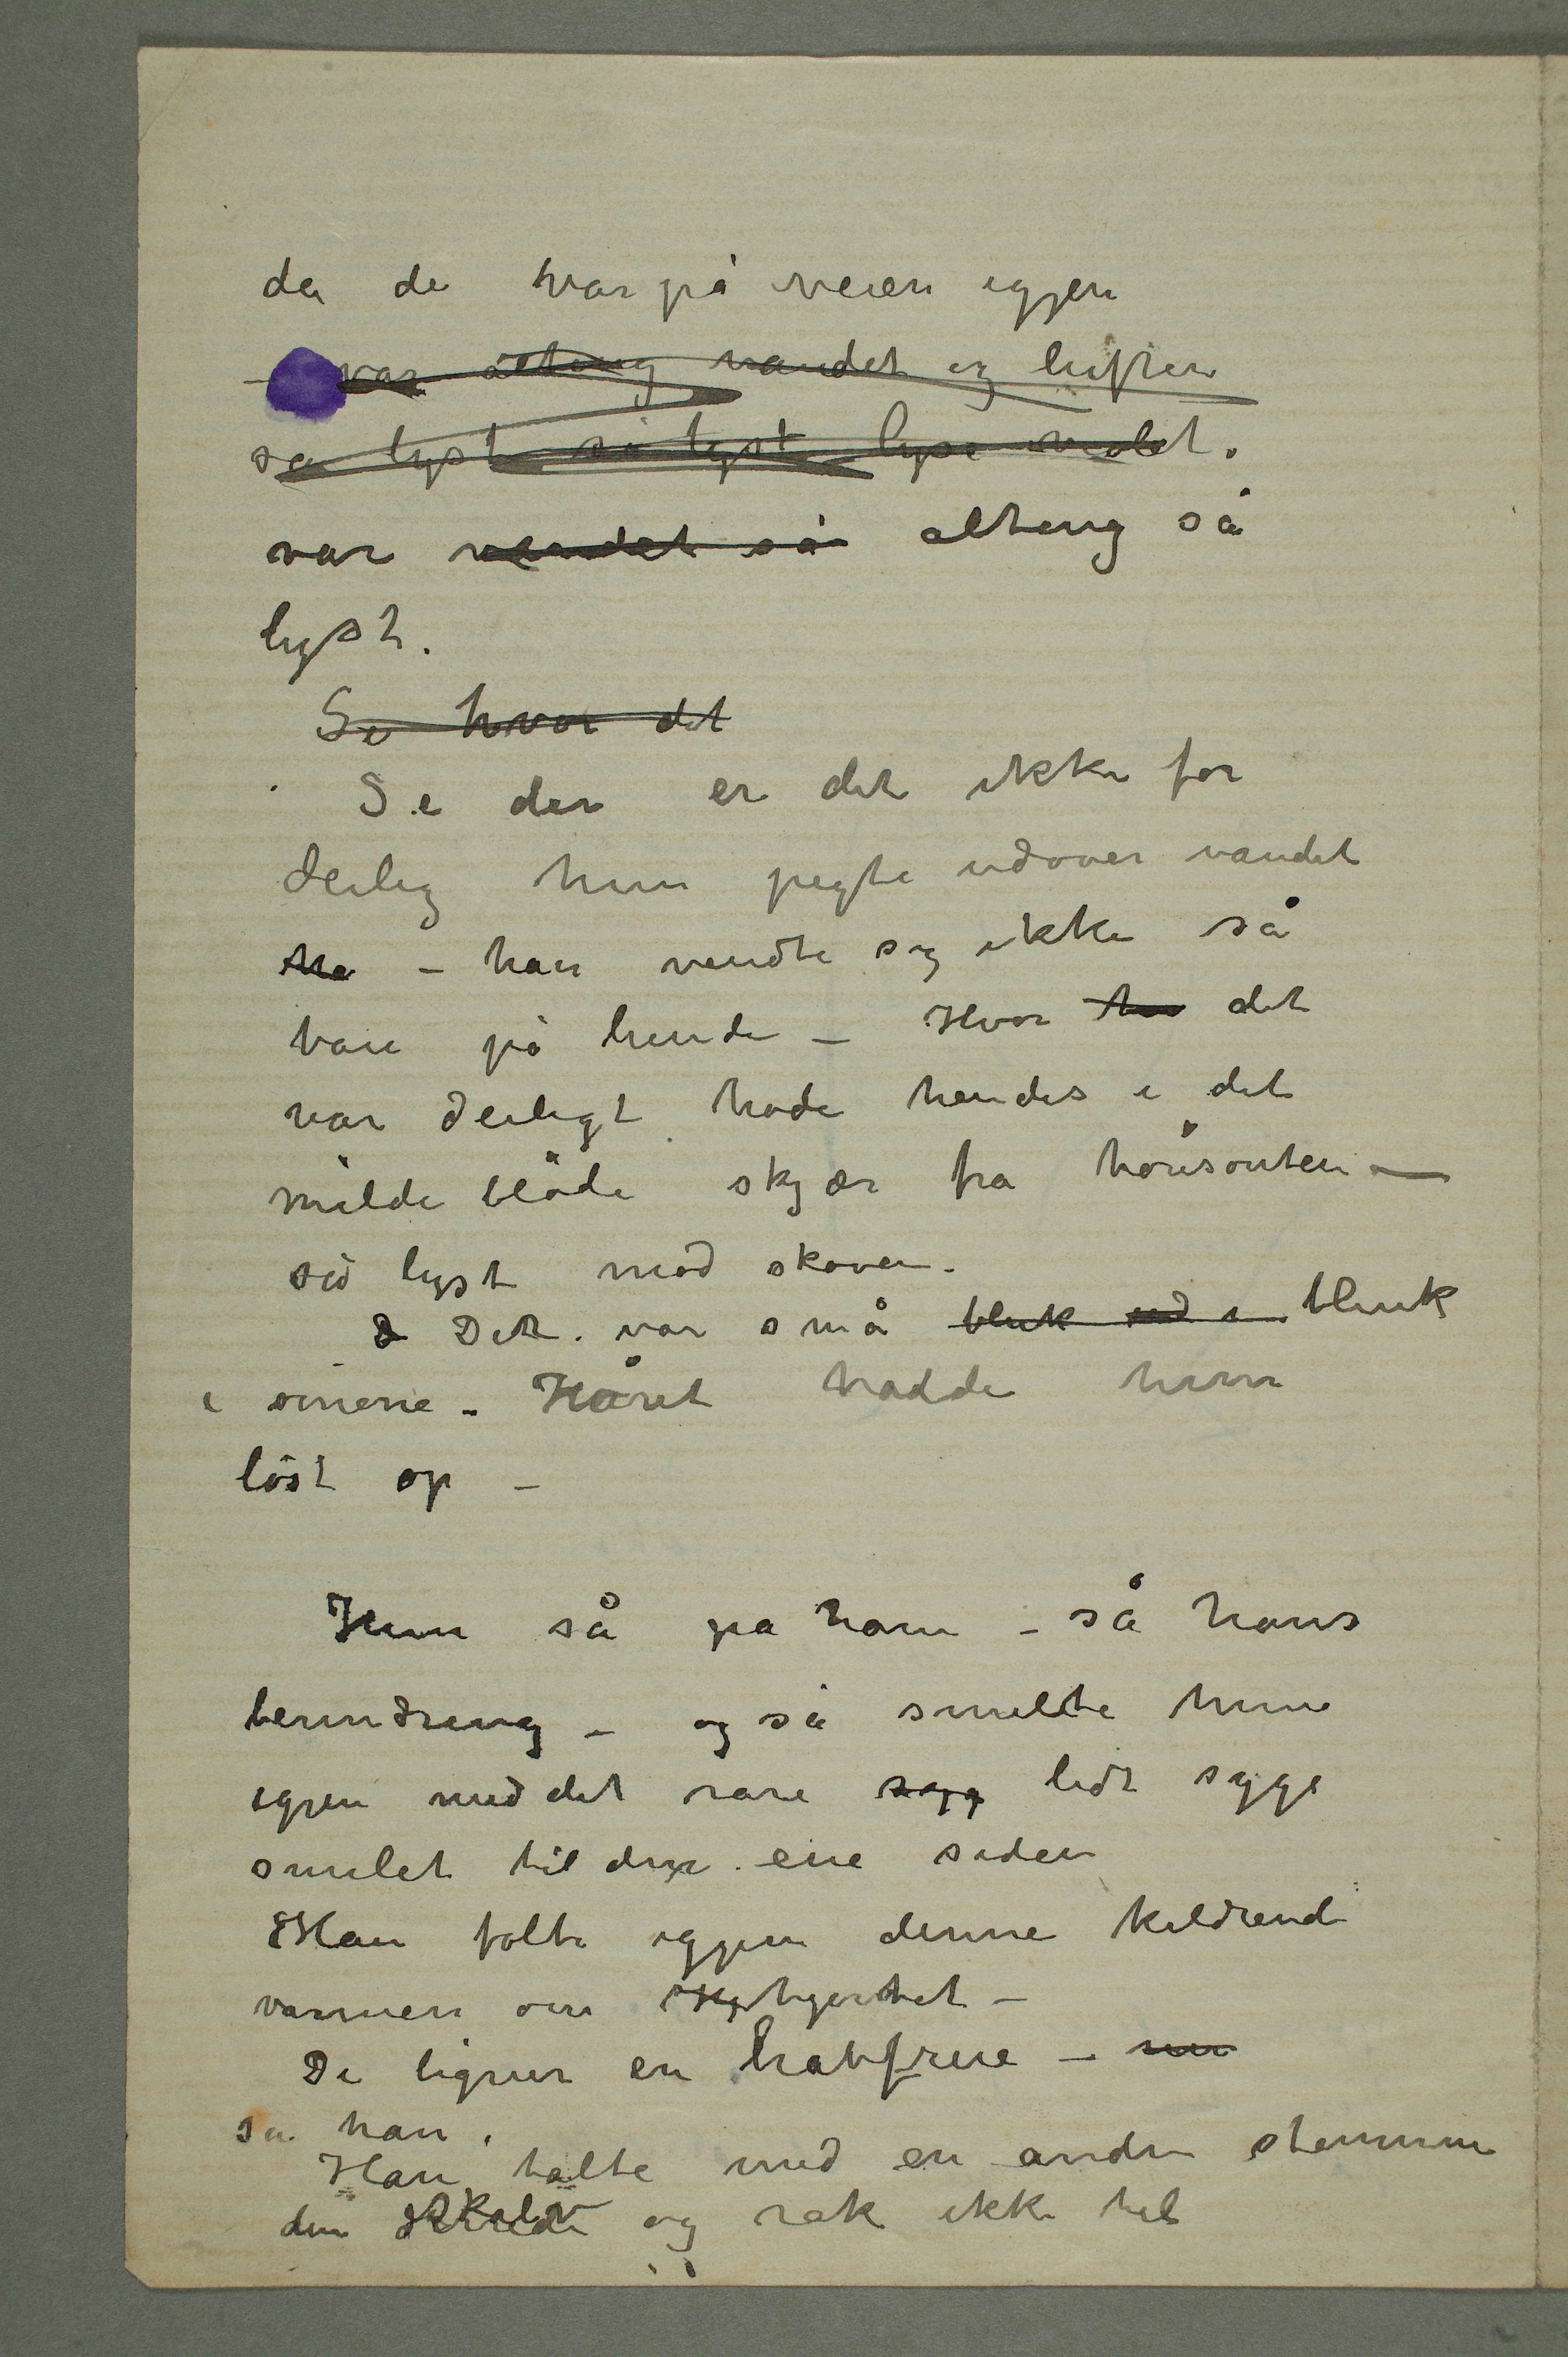 da de var på veien igjen
– var alting vandet og luften
så lyst så lyst lyse violet.
var vandet så alting så
lyst.
Se hvor det
Se der er det ikke for
deilig hun pegte udover vandet
ha – han vendte sig ikke så
bare på hende – Hvor har det
var deiligt hode hendes i det
milde bløde skjær fra horisonten –
så lyst mod skoven.
D Det var små blik ud i blink
i øinene – Håret hadde hun
løst op –
Hun så på ham – så hans
beundring – og så smilte hun
igjen med det rare syg lidt syge
smilet til den ene siden
Han følte igjen denne kildrende
varmen om Hj hjertet –
De ligner en havfrue – nu
sa han.
Han talte med en anden stemme
den skalv og rak ikke til